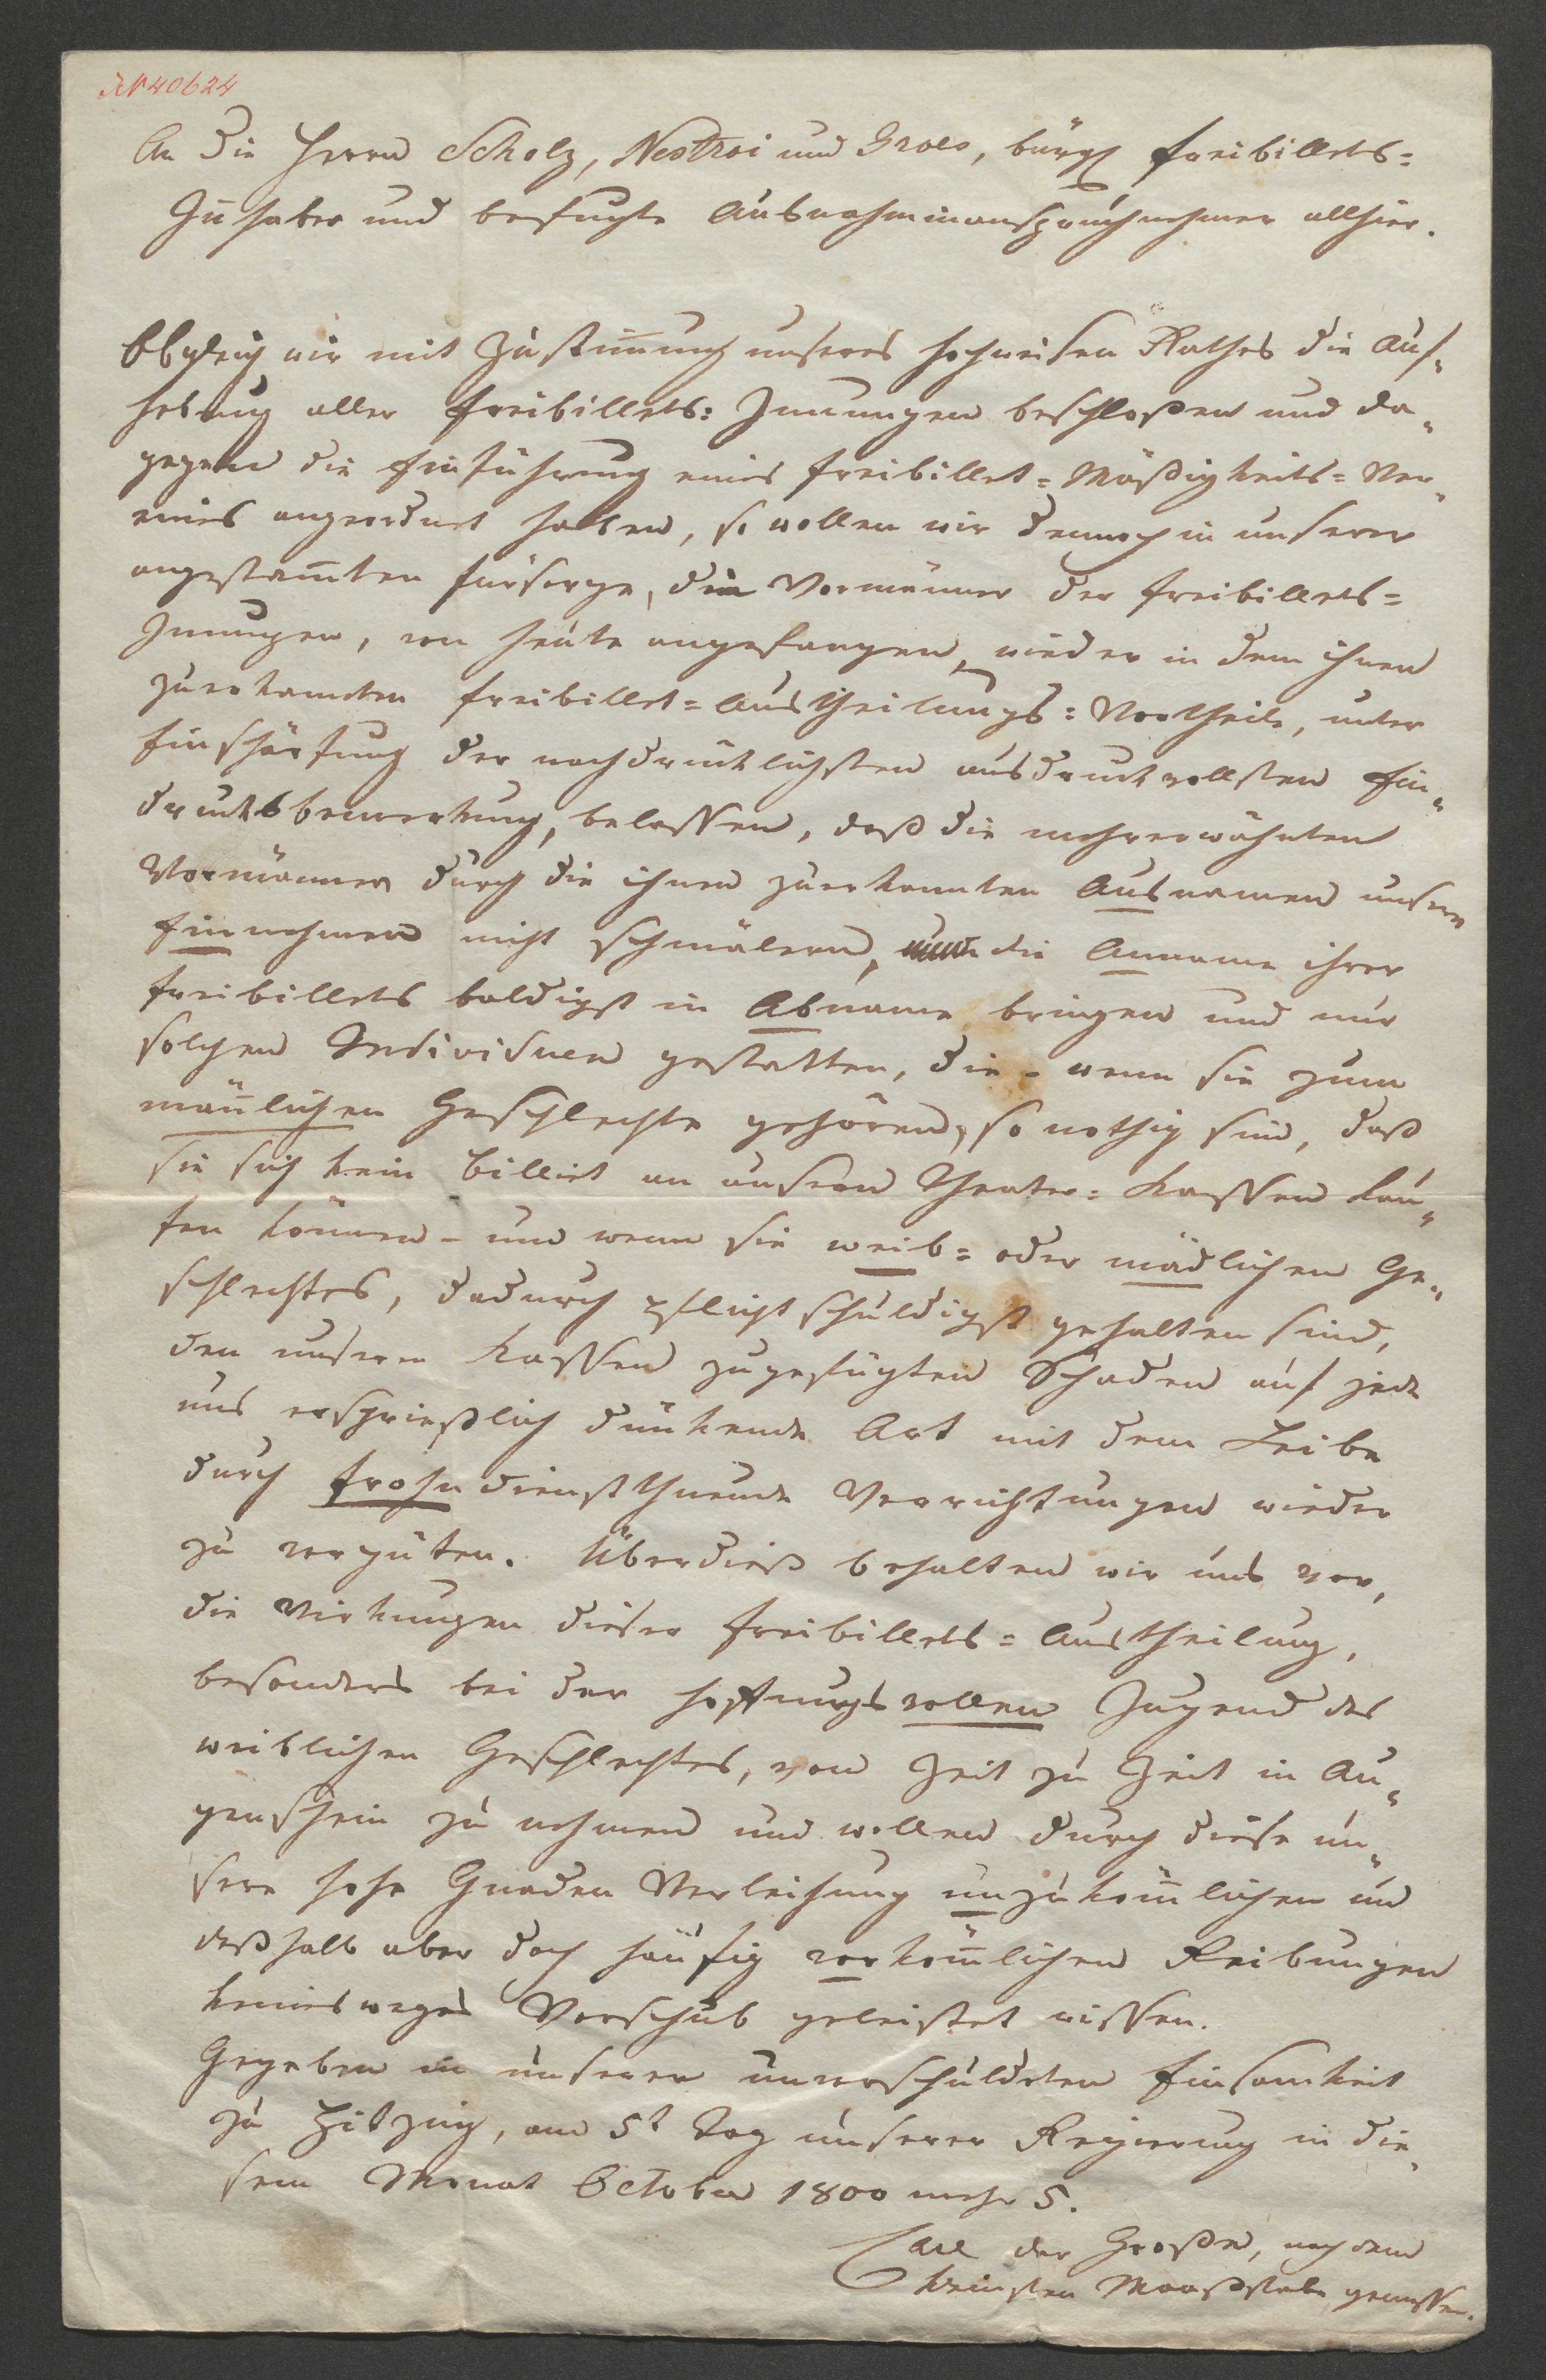 JN 40624
An die Herrn Scholz, Nestroi und Grois, bürgl Freibillets=
Inhaber und befugte Ausnahminanspruchnehmer allhier.
Obgleich wir mit Zustim̄ung unseres hochweisen Rathes die Auf„
hebung aller Freibillets: Innungen beschloßen und da„
gegen die Einführung eines Freibillet=Mäßigkeits=Ver„
eines angeordnet haben, so wollen wir dennoch in unserer
angestam̄ten Fürsorge, die Vormänner der Freibillets=
Innungen, von heute angefangen, wieder in dem ihnen
zuerkannten Freibillet=Austheilungs=Vortheile, unter
Einschärfung der nachdrücklichsten ausdruckvollsten Ein„
drucksbemerkung, belassen, daß die mehrerwähnten
Vormänner durch die ihnen zuerkannten Ausnamen unsere
Einnehmen nicht schmälern, die Anname ihrer
Freibillets baldigst in Abname bringen und nur
solchen Individuen gestatten, die – wenn sie zum
män̄lichen Geschlechte gehören, so nothig sind, daß
sie sich kein Billiet an unsern Theater=Kassen kau„
fen können – und wenn sie weib= oder mädlichen Ge„
schlechtes, dadurch pflichtschuldigst gehalten sind,
den unseren Kassen zugefügten Schaden auf jede
uns ersprießlich dünkende Art mit dem Leibe
durch frohndienstthuende Verrichtungen wieder
zu vergüten. Überdieß behalten wir uns vor,
die Wirkungen dieser Freibillets=Austheilung,
besonders bei der hoffnungsvollen Jugend des
weiblichen Geschlechtes, von Zeit zu Zeit in Au„
genschein zu nehmen und wollen durch diese un„
sere hohe Gnaden Verleihung unzuköm̄lichen und
deßhalb aber doch häufig vorköm̄lichen Reibungen
keineswegs Vorschub geleistet wissen.
Gegeben in unserer unverschuldeten Einsamkeit
zu Hitzing, am 5t Tag unserer Regierung in die„
sem Monat October 1800 mehr 5.
Carl der Große, nach dem
kleinsten Maaßstabe gemessen.